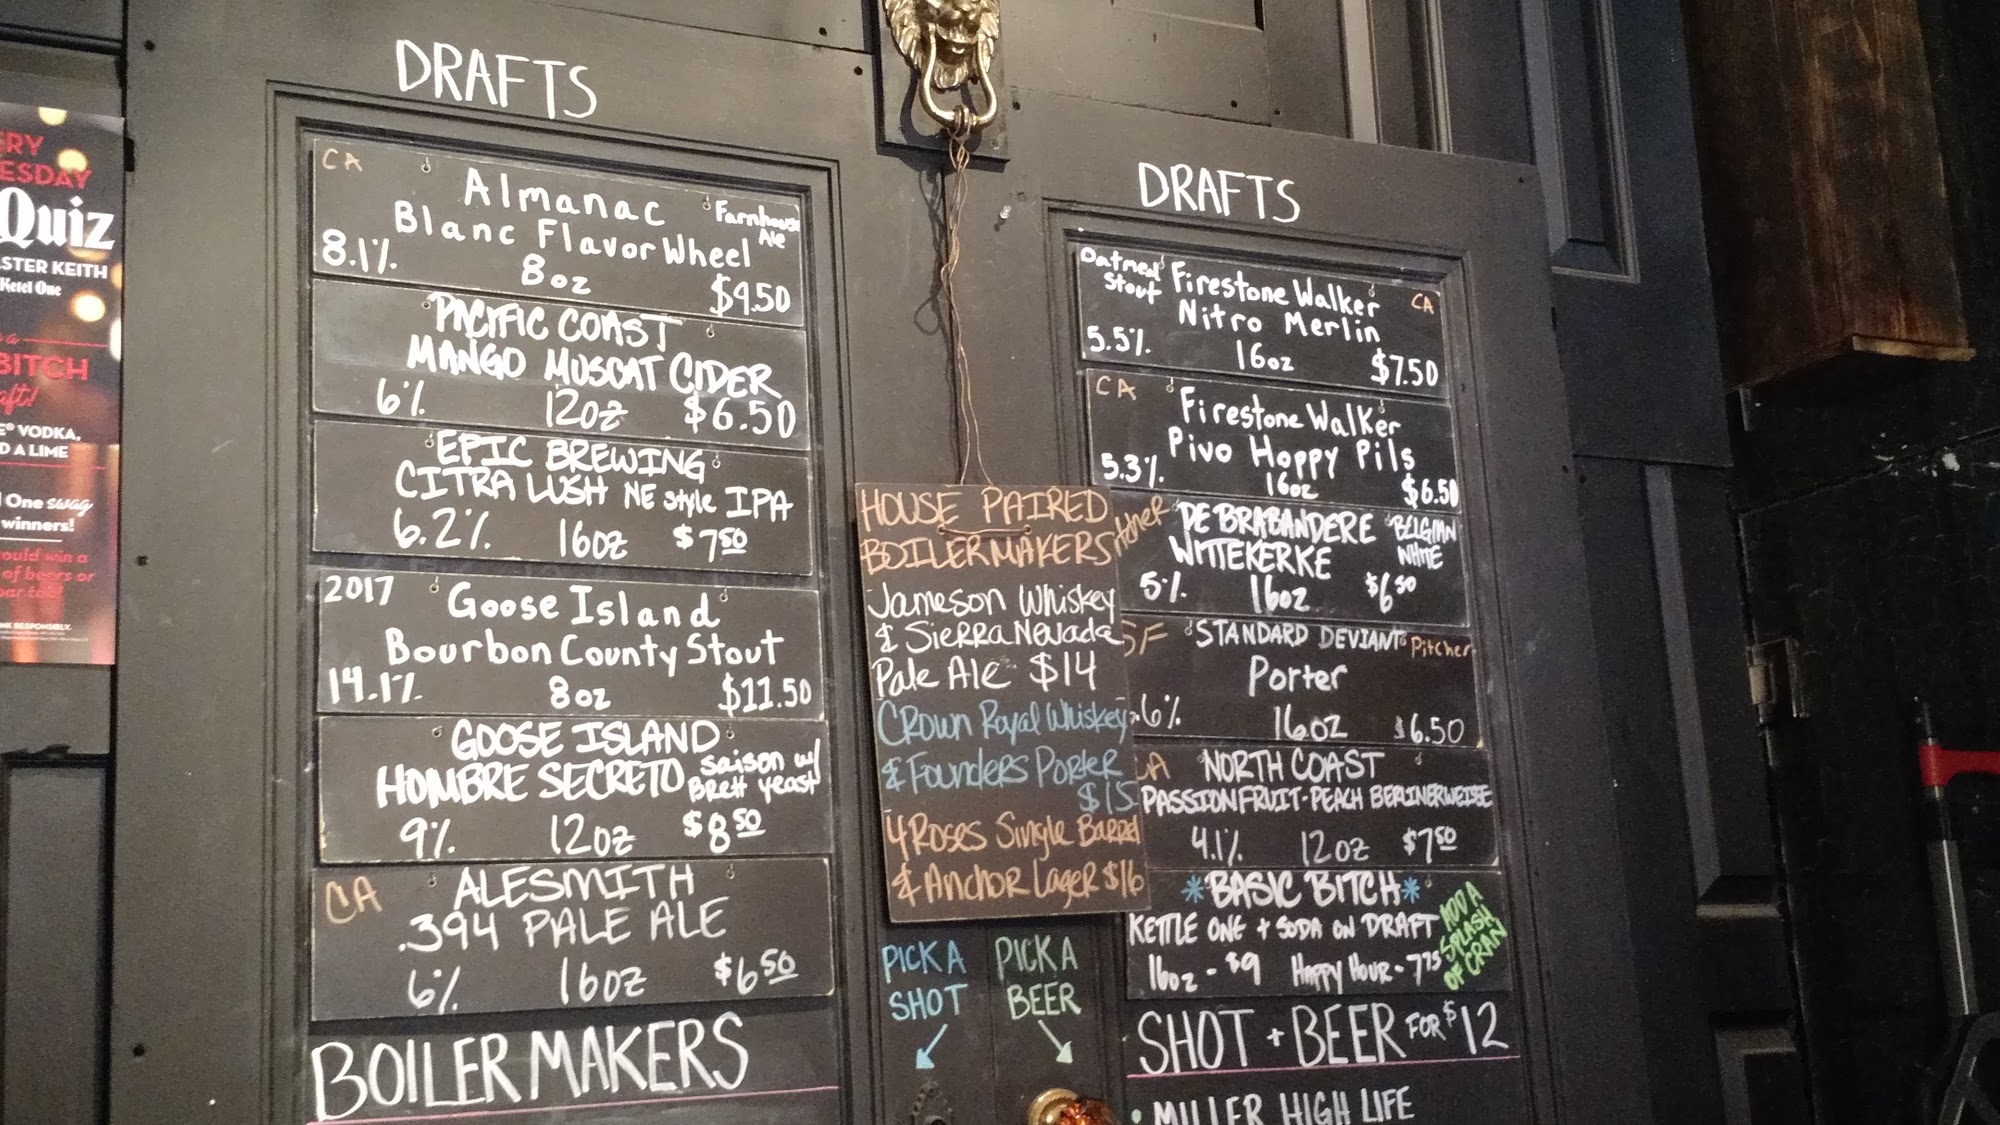 ERY
ESDAY
Quiz
STER KEITH
Ketel One
BITCH
VODKA,
D A LIME
One swag
winners!
ould win a
of beers or
bar tab!
NK RESPONSIBLY.
DRAFTS
CA
Almanac
Farmhouse
Ale
Blanc Flavor Wheel
8.1%
8oz
$9.50
PACIFIC COAST
MANGO MUSCAT CIDER
6% 12oz $6.50
EPIC BREWING
CITRA LUSH NE style IPA
6.2% 16oz $7.50
2017
Goose Island
Bourbon County Stout
14.1% 8oz $11.50
GOOSE ISLAND
HOMBRE SECRETO saison w/
Brett yeast
9% 12oz $8.50
CA
ALESMITH
.394 PALE ALE
6% 16oz $6.50
BOILERMAKERS
HOUSE PAIRED
BOILERMAKERS
Jameson Whiskey
& Sierra Nevada
Pale Ale $14
Crown Royal Whiskey
& Founders Porter
$15
4 Roses Single Barrel
& Anchor Lager $16
PICK A
SHOT
PICK A
BEER
DRAFTS
Oatmeal
Stout
Firestone Walker
CA
Nitro Merlin
5.5% 16oz $7.50
CA
Firestone Walker
Pivo Hoppy Pils
5.3% 16oz $6.50
DE BRABANDERE
WITTEKERKE
BELGIAN
WHITE
5% 16oz $6.50
SF
STANDARD DEVIANT
Pitcher
Porter
6% 16oz $6.50
CA
NORTH COAST
PASSIONFRUIT-PEACH BERLINERWEISE
4.1% 12oz $7.50
*BASIC BITCH*
KETTLE ONE + SODA ON DRAFT
16oz - $9 Happy Hour - 7.75
ADD A
SPLASH
OF CRAN
SHOT + BEER FOR $12
• MILLER HIGH LIFE